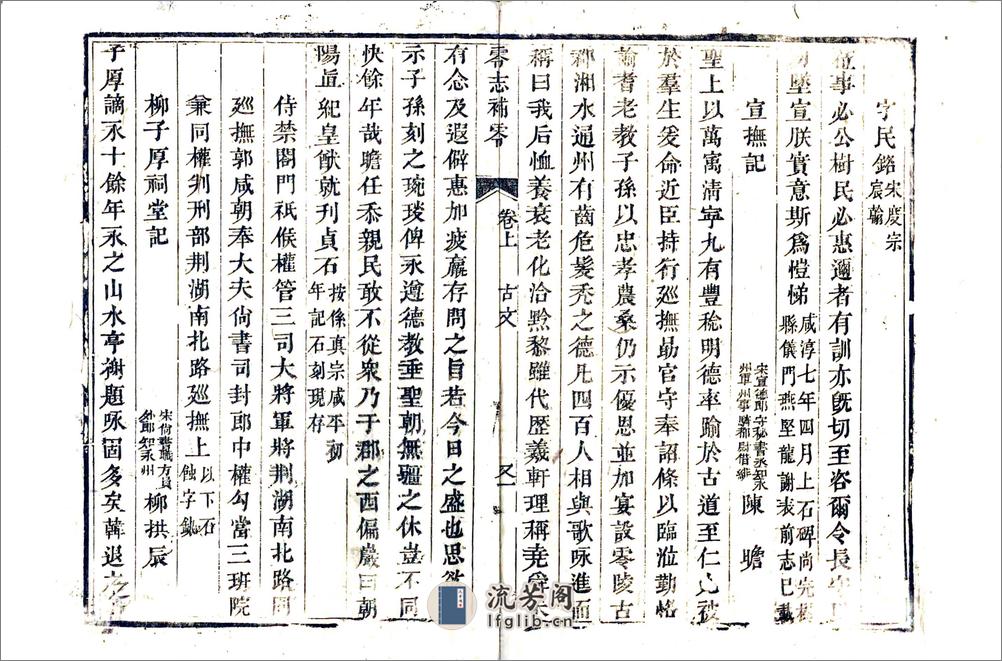 字民銘宋度宗宸翰
蒞事必公樹民必惠邇者有訓亦旣切至咨爾令長
墜宣朕實意斯爲愷悌咸淳七年四月上石碑尚完
縣儀門燕堅龍謝表前志已載
宣撫記
宋宣德郎守秘書丞知永州軍州事騎都尉借緋陳瞻
聖上以萬㝢清寧九有豐稅明德率踰於古道至仁已被
於羣生爰命近臣持行廵撫勗官守奉詔條以臨涖勤恪
諭耆老教子孫以忠孝農桑仍示優恩並加宴設零陵古
郡湘水通州有齒危髮禿之德凡四百人相與歌咏進而
稱曰我后恤養衰老化洽黔黎雖代歷羲軒理稱堯舜未
零志補零
卷上
古文
又一
有念及遐僻惠加疲羸存問之旨若今日之盛也思欲
示子孫刻之琬琰俾永遵德教垂聖朝無疆之休豈不同
快餘年哉瞻任忝親民敢不從衆乃于郡之西偏巖曰朝
陽直紀皇猷就刋貞石按係真宗咸平初年記石刻現存
侍禁閣門祇候權管三司大將軍將荆湖南北路同
廵撫郭咸朝奉大夫尙書司封郎中權勾當三班院
兼同權判刑部荆湖南北路廵撫上以下石蝕字缺
柳子厚祠堂記
宋尙書職方員外郎知永州柳拱辰
子厚謫永十餘年永之山水亭榭題咏固多矣韓退之
流芳阁
lfglib.cn